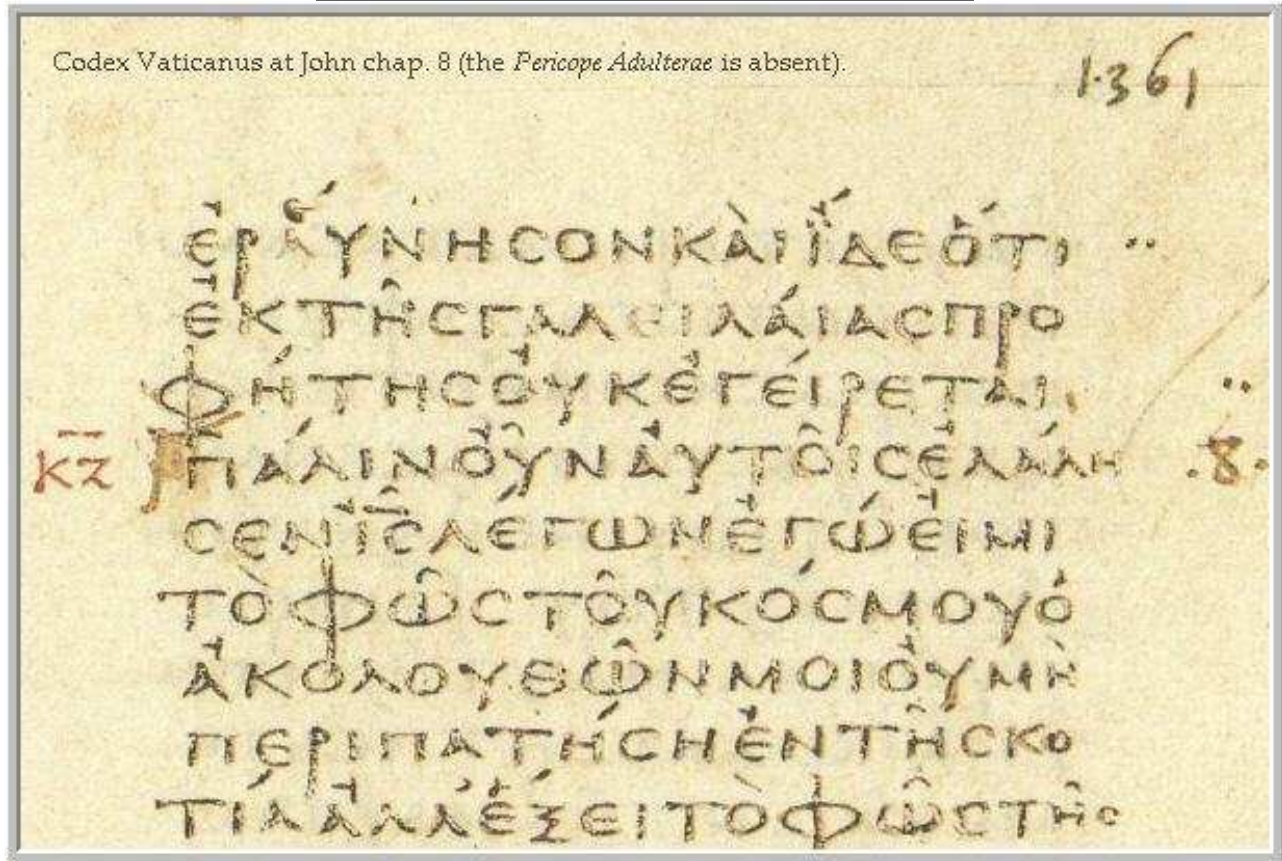 Codex Vaticanus at John chap. 8 (the Pericope Adulterae is absent).
1361
ἐρἀύνηϲονκὰιἴδεὅτι
ἐκτῆϲγαλειλάιαϲπρο
φήτηϲὀυκἐγέιρεται
κζ πάλινὀῦναὐτοῖϲἐλάλη
ϲενι̅ϲ̅λέγωνἐγώἐιμι
τὸφῶϲτοῦκόϲμουὁ
ἀκολουθῶνμοιὀυμὴ
περιπατήϲηἐντῆϲκο
τίαἀλλἕξειτὸφῶϲτῆϲ